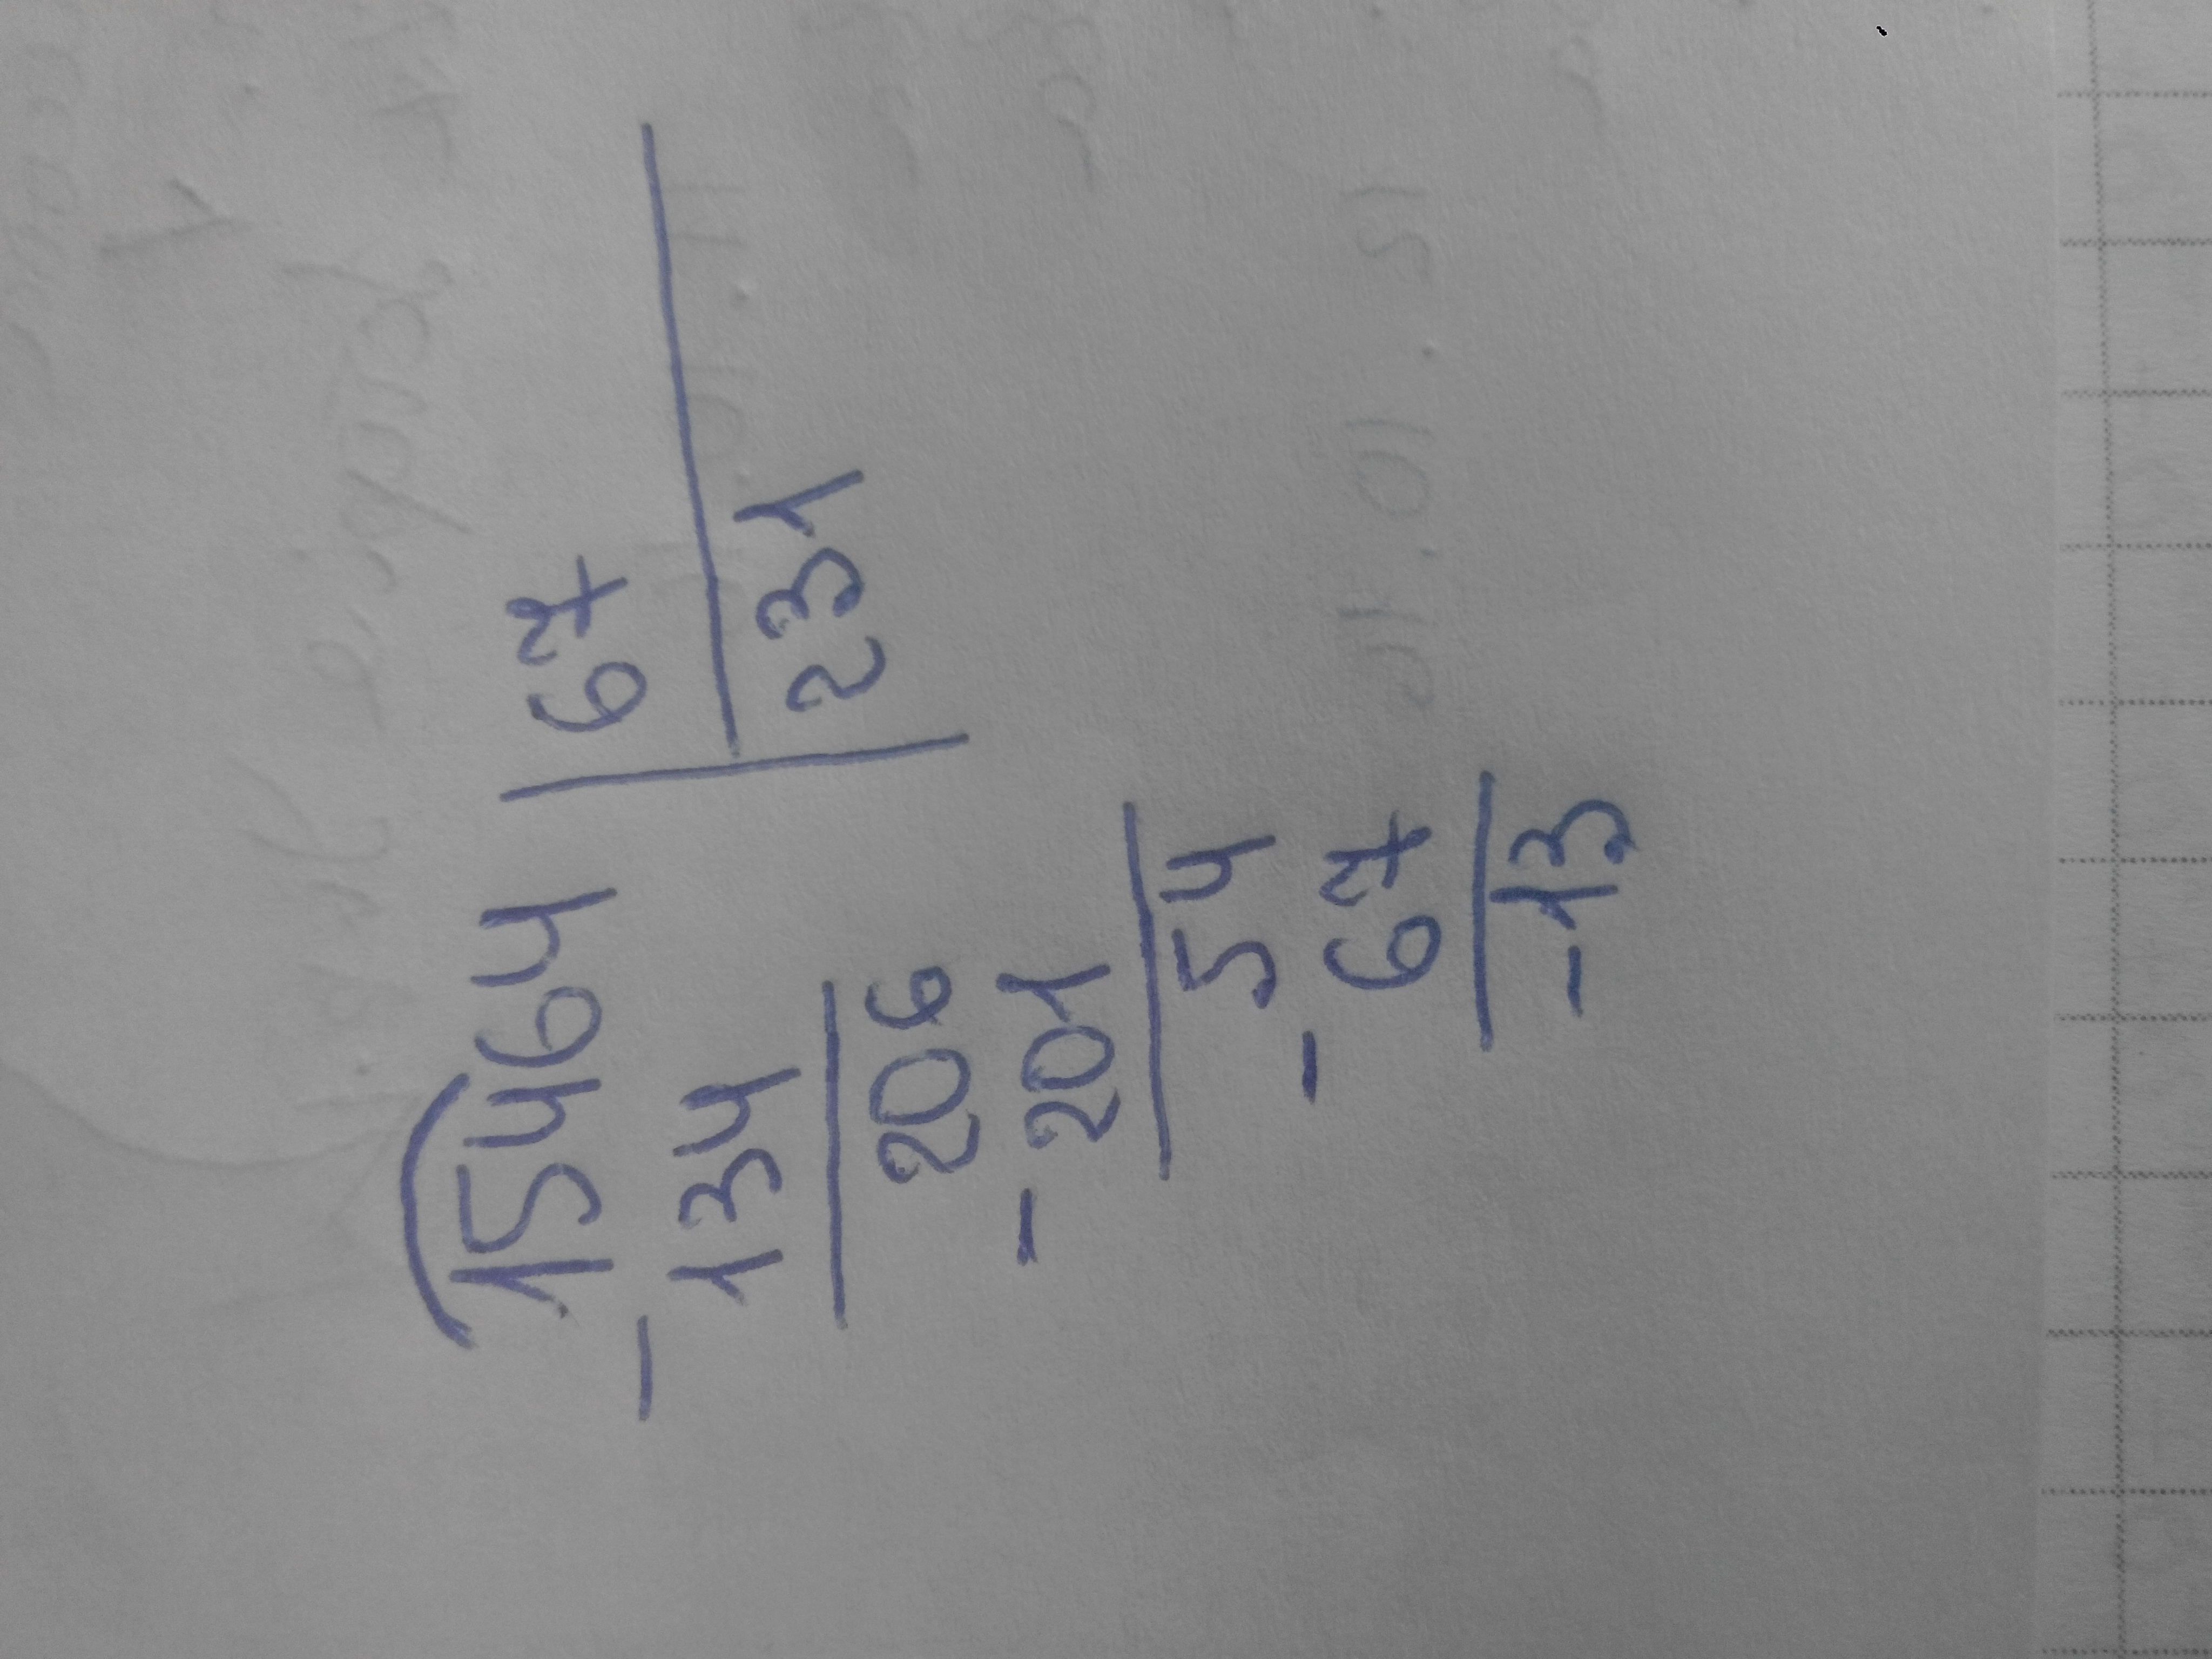 15464 67
- 134 231
206
- 201
54
- 67
-13